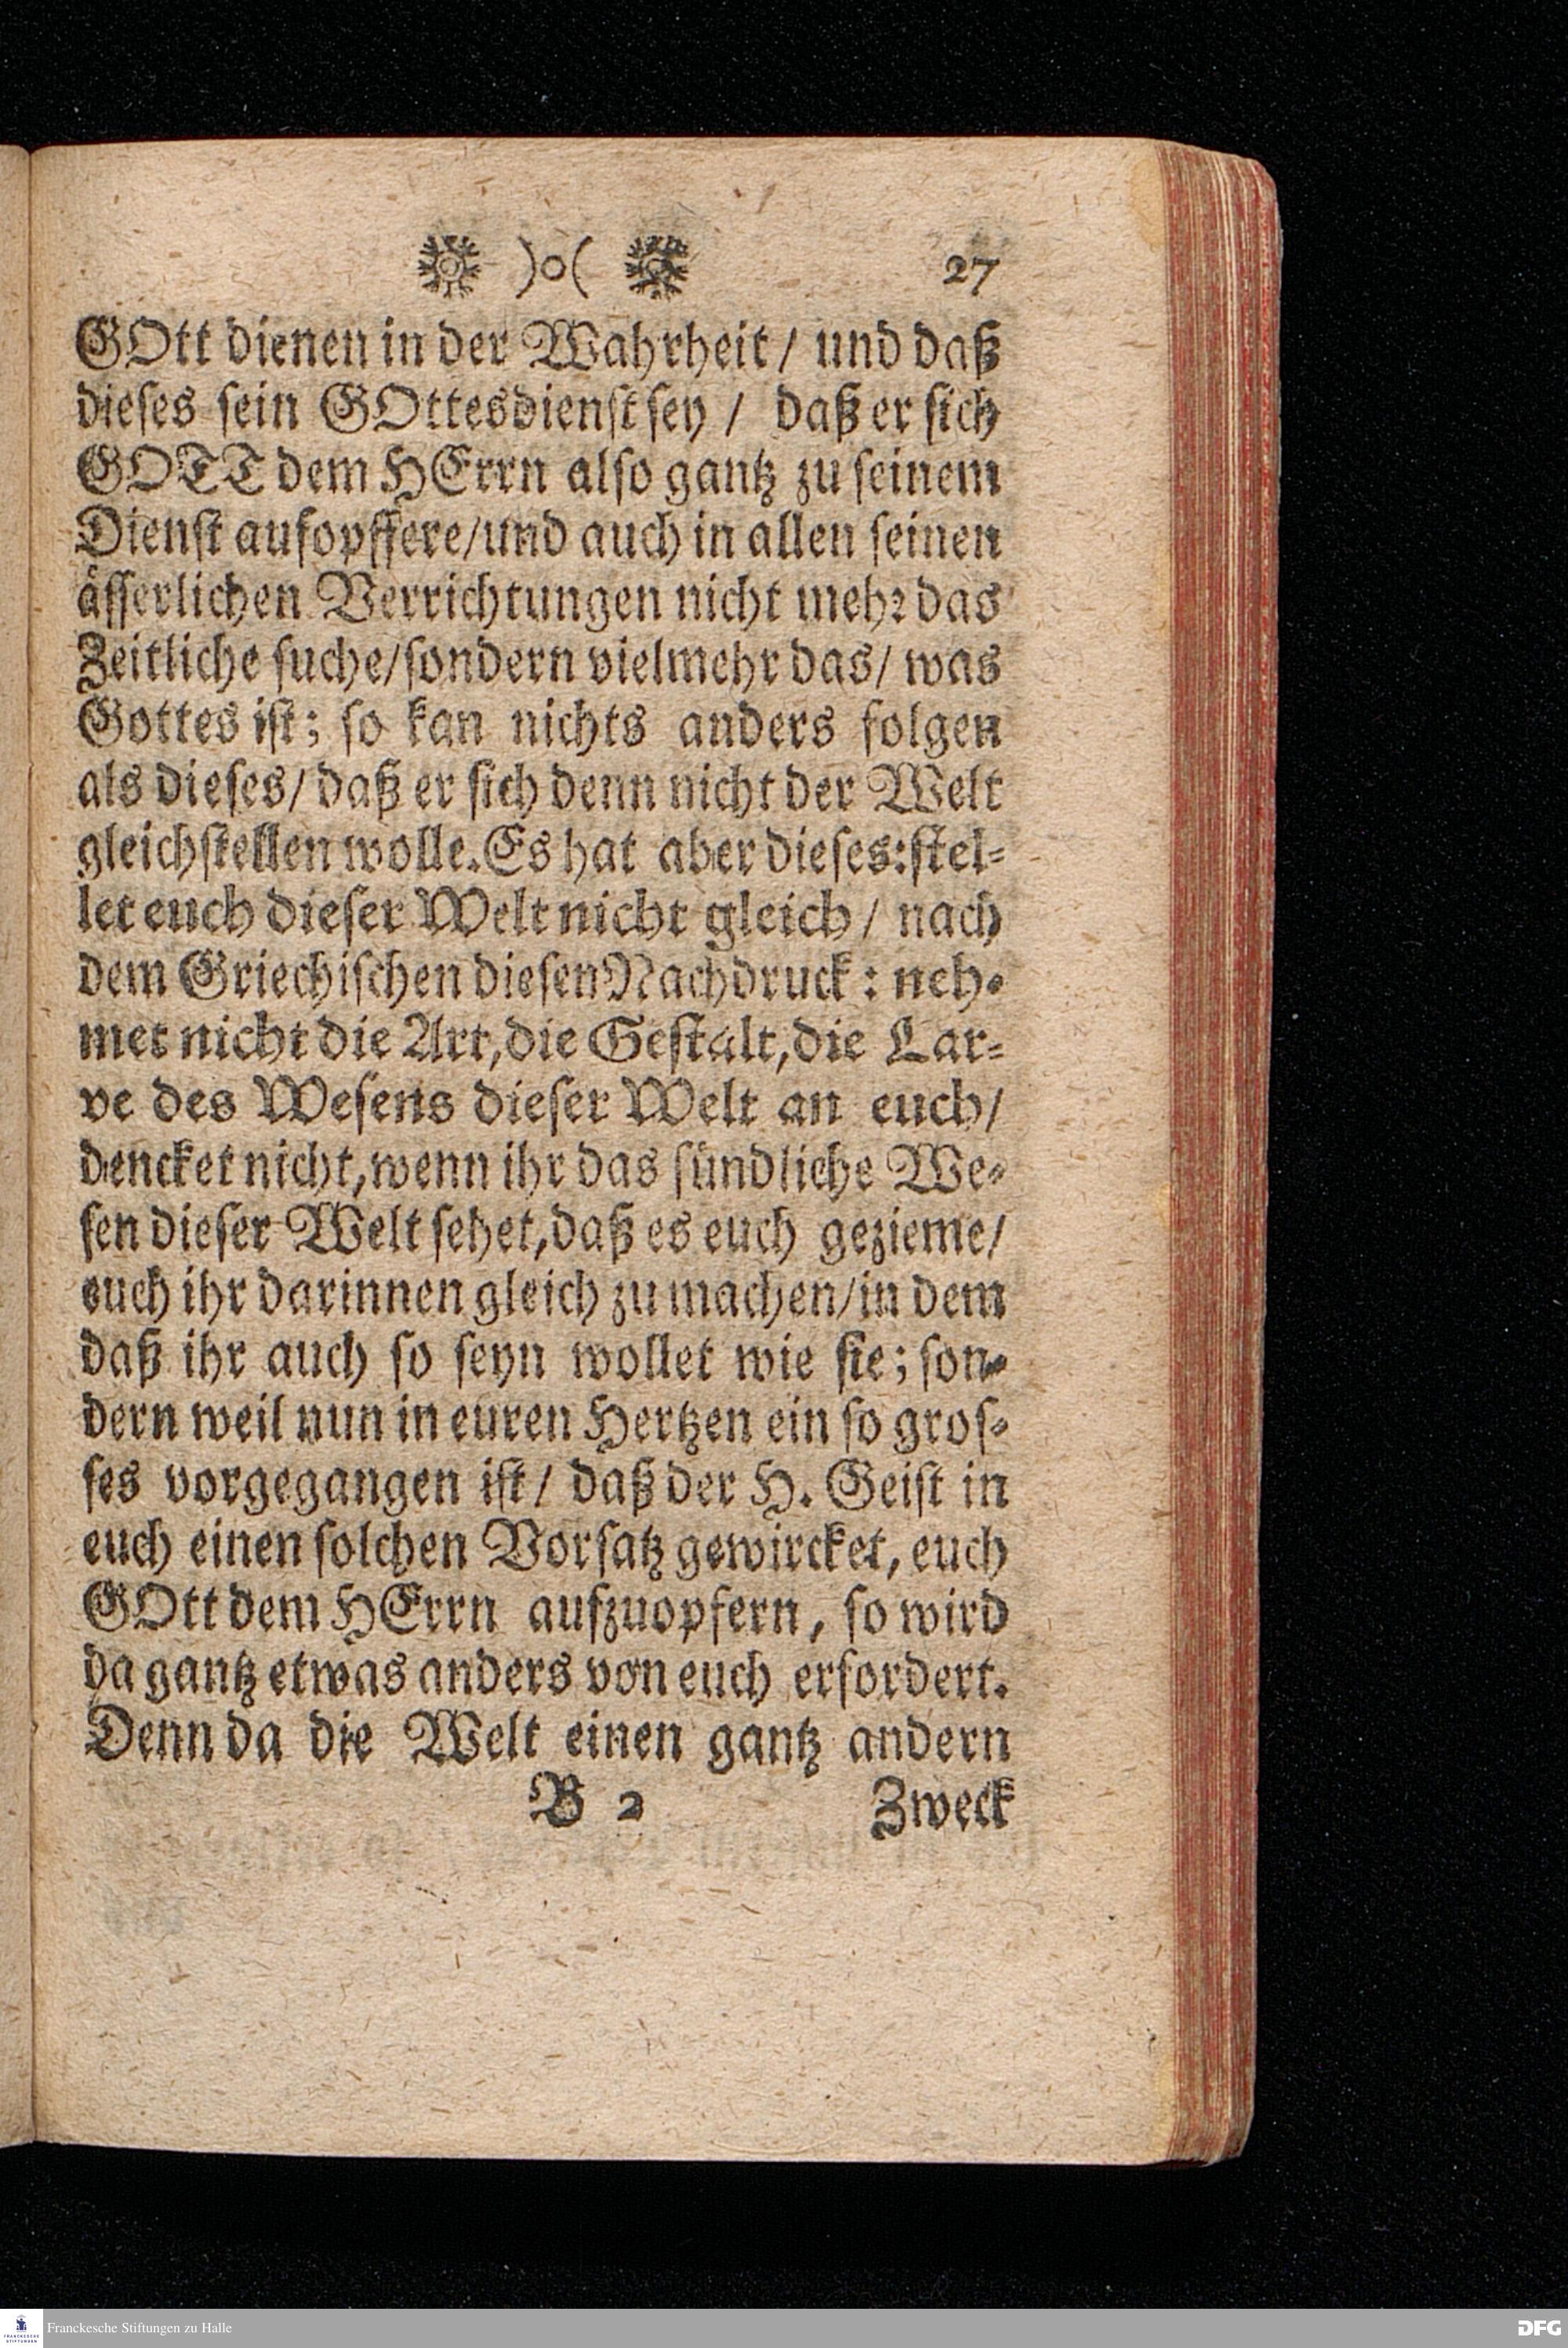 )o( 27
GOtt dienen in der Wahrheit / und daß
dieses sein GOttesdienst sey / daß er sich
GOTT dem HErrn also gantz zu seinem
Dienst aufopffere/und auch in allen seinen
äsſerlichen Verrichtungen nicht mehr das
Zeitliche suche/sondern vielmehr das/ was
Gottes ist; so kan nichts anders folgen
als dieses/ daß er sich denn nicht der Welt
gleichstellen wolle. Es hat aber dieses: stel-
let euch dieser Welt nicht gleich / nach
dem Griechischen diesen Nachdruck: neh-
met nicht die Art, die Gestalt, die Lar-
ve des Wesens dieser Welt an euch/
dencket nicht, wenn ihr das sündliche We-
sen dieser Welt sehet, daß es euch gezieme/
euch ihr darinnen gleich zu machen/in dem
daß ihr auch so seyn wollet wie sie; son-
dern weil nun in euren Hertzen ein so gros-
ses vorgegangen ist/ daß der H. Geist in
euch einen solchen Vorsatz gewircket, euch
GOtt dem HErrn aufzuopfern, so wird
da gantz etwas anders von euch erfordert.
Denn da die Welt einen gantz andern
B 2 Zweck
FRANCKESCHE STIFTUNGEN
Franckesche Stiftungen zu Halle
DFG